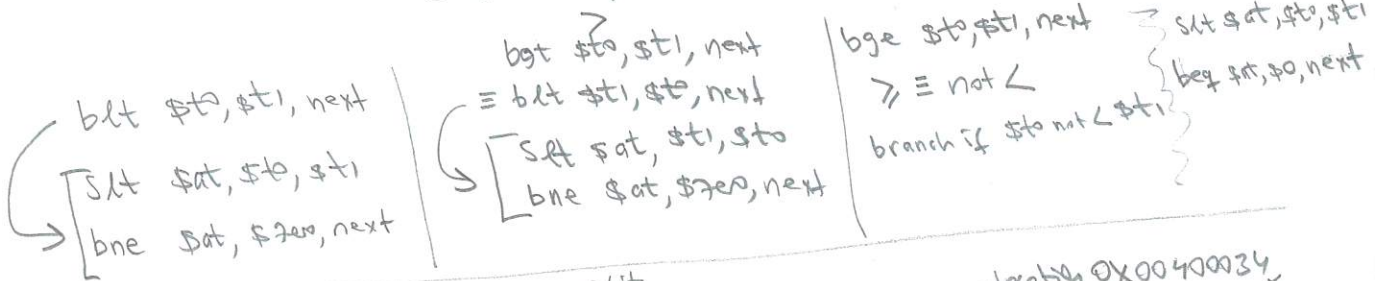 blt $t0, $t1, next
slt $at, $t0, $t1
bne $at, $zero, next
>
bgt $t0, $t1, next
≡ blt $t1, $t0, next
slt $at, $t1, $t0
bne $at, $zero, next
bge $t0, $t1, next
≥ ≡ not <
branch if $t0 not < $t1
slt $at, $t0, $t1
beq $at, $0, next
location 0X00400034